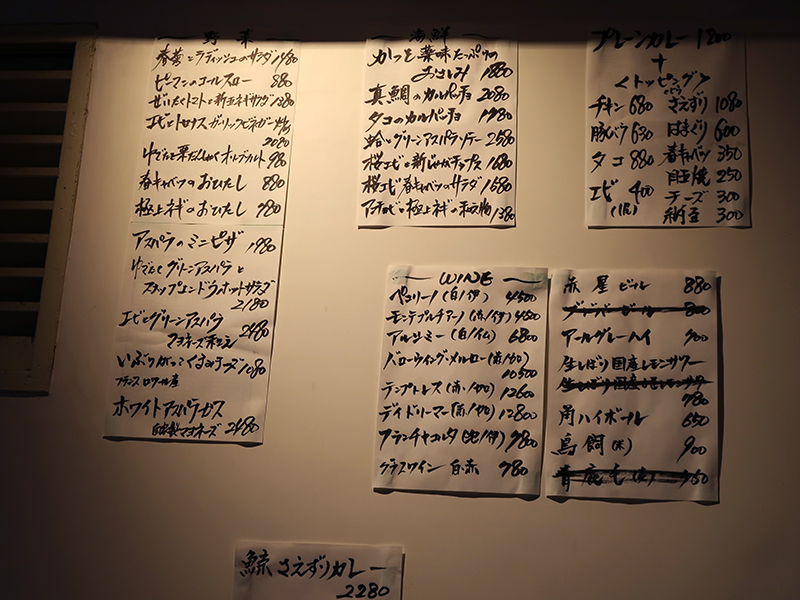 野菜
春菊とラディッシュのサラダ 1480
ピーマンのコールスロー 880
ぜいたくトマトと新玉ネギサラダ 1380
エビと トマトナス ガーリックビネガー
2080
オルブルト 980
春キャベツのおひたし 880
極上ネギのおひたし 980
アスパラのミニピザ 1980
ゆでたてグリーンアスパラと
スナップエンドウホットサラダ
2180
エビとグリーンアスパラ
マヨネーズ和え 2480
いぶりがっこくるみチーズ 1080
フランスロワール産
ホワイトアスパラガス
自家製マヨネーズ 2480
海鮮
かつを薬味たっぷりの
おさしみ 1880
真鯛のカルパッチョ 2080
タコのカルパッチョ 1980
蛤とグリーンアスパラソテー 2580
桜エビと新じゃがチップス 1680
桜エビ春キャベツのサラダ 1680
アンチョビと極上ネギの 1380
プレーンカレー 1200
+
<トッピング>
チキン 680
豚バラ 630
タコ 880
エビ 400
(1尾)
さえずり 1080
はまぐり 600
春キャベツ 350
目玉焼 250
チーズ 300
納豆 300
WINE
ペコリーノ (白/伊) 4500
モンテプルチアーノ (赤/伊) 4500
アルシミー (白/仏) 6800
バローウィング・メルロー (赤/加)
10500
テンプトレス (赤/加) 12600
デイドリーマー (赤/加) 12800
フランチャコルタ (泡/伊) 9800
グラスワイン 白・赤 980
赤星ビール 880
800
アールグレーハイ 900
生しぼり国産レモンサワー
生しぼり国産レモンサワー
780
角ハイボール 650
鳥飼 (米) 900
青鹿毛 (麦) 950
鯨さえずりカレー
2280